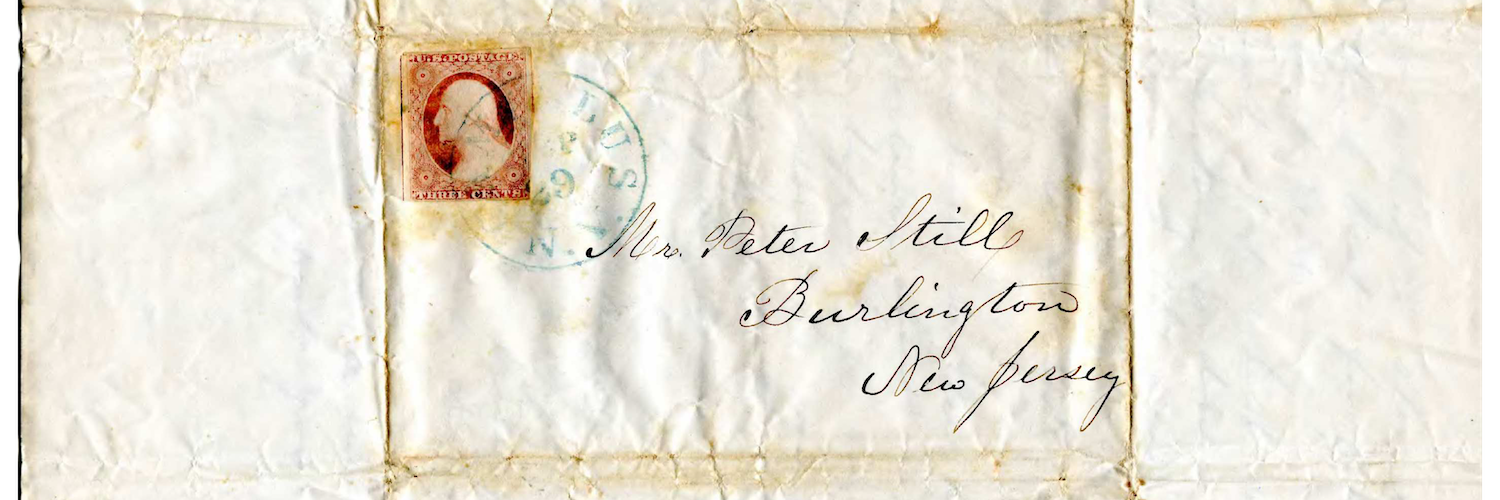 U.S. POSTAGE.
THREE CENTS
LUS
9
N.Y.
Mr. Peter Still
Burlington
New Jersey